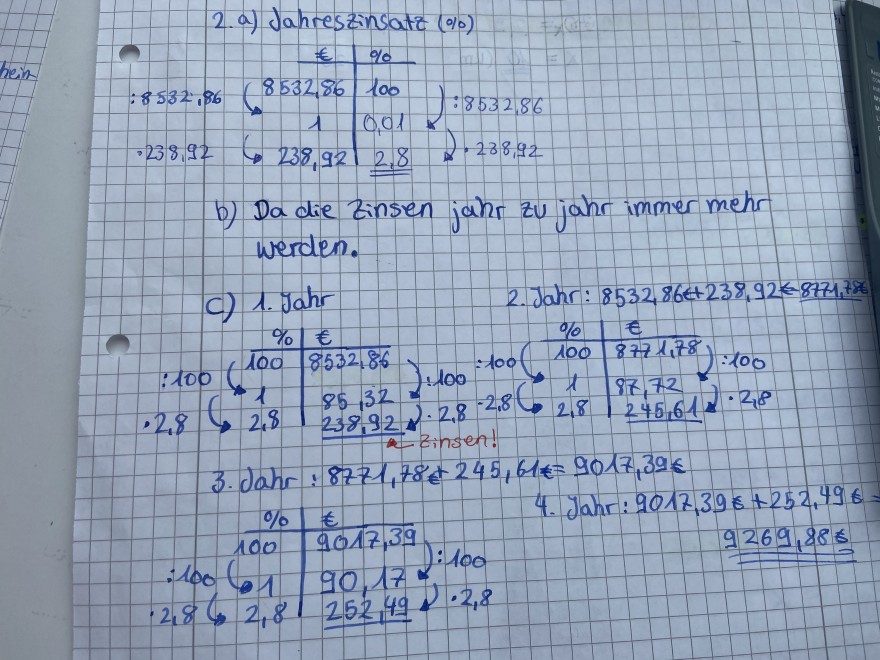 hein
2.a) Jahreszinsatz (%)
€ | %
:8532,86 8532,86 | 100 :8532,86
1 | 0,01
·238,92 238,92 | 2,8 ·238,92
b) Da die Zinsen jahr zu jahr immer mehr
werden.
c) 1. Jahr
% | €
:100 100 | 8532,86 :100
1 | 85,32
·2,8 2,8 | 238,92 ·2,8
Zinsen!
2. Jahr: 8532,86€+238,92€=8771,78€
% | €
:100 100 | 8771,78 :100
1 | 87,72
·2,8 2,8 | 245,61 ·2,8
3. Jahr: 8771,78€+245,61€=9017,39€
% | €
100 | 9017,39
:100 1 | 90,17 :100
·2,8 2,8 | 252,49 ·2,8
4. Jahr: 9017,39€+252,49€=
9269,88€